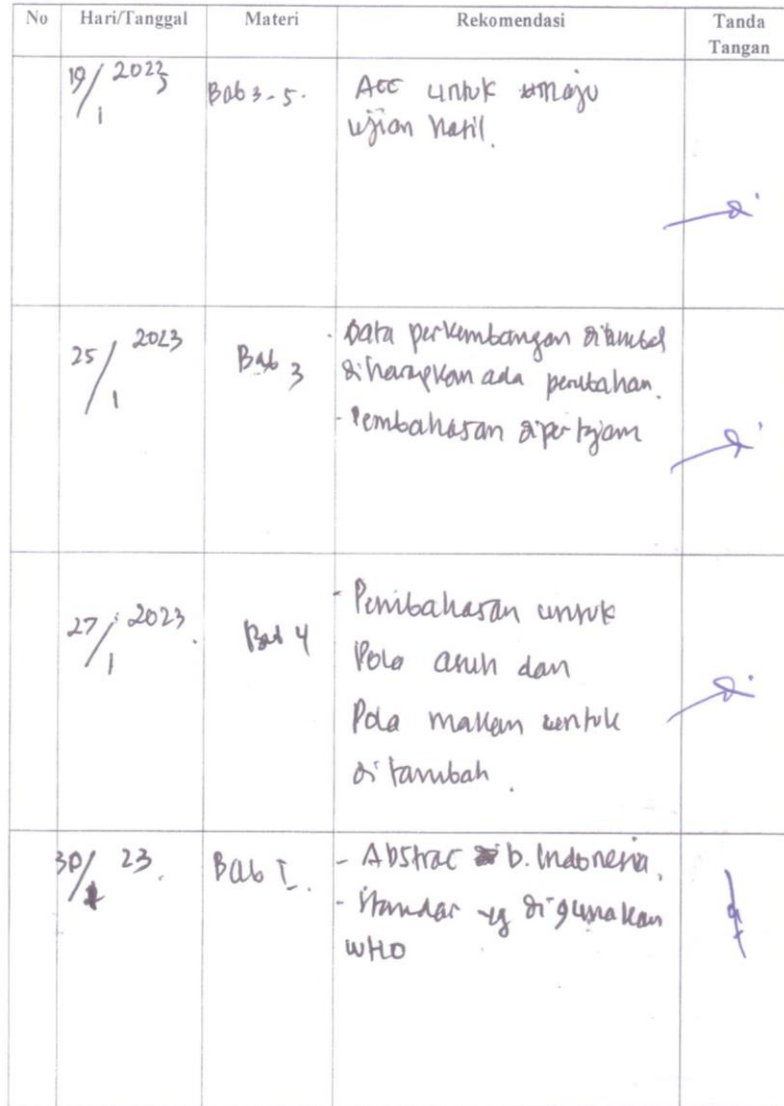 No Hari/Tanggal Materi Rekomendasi Tanda Tangan
19/1 2023 Bab 3-5. Acc untuk maju
ujian hasil.
25/1 2023 Bab 3 - Data perkembangan ditambah
diharapkan ada perubahan.
- Pembahasan dipertajam
27/1 2023. Bab 4 - Pembahasan untuk
Pola asuh dan
Pola makan untuk
ditambah.
30/1 23. Bab I. - Abstrac b. Indonesia,
- Standar yg digunakan
WHO